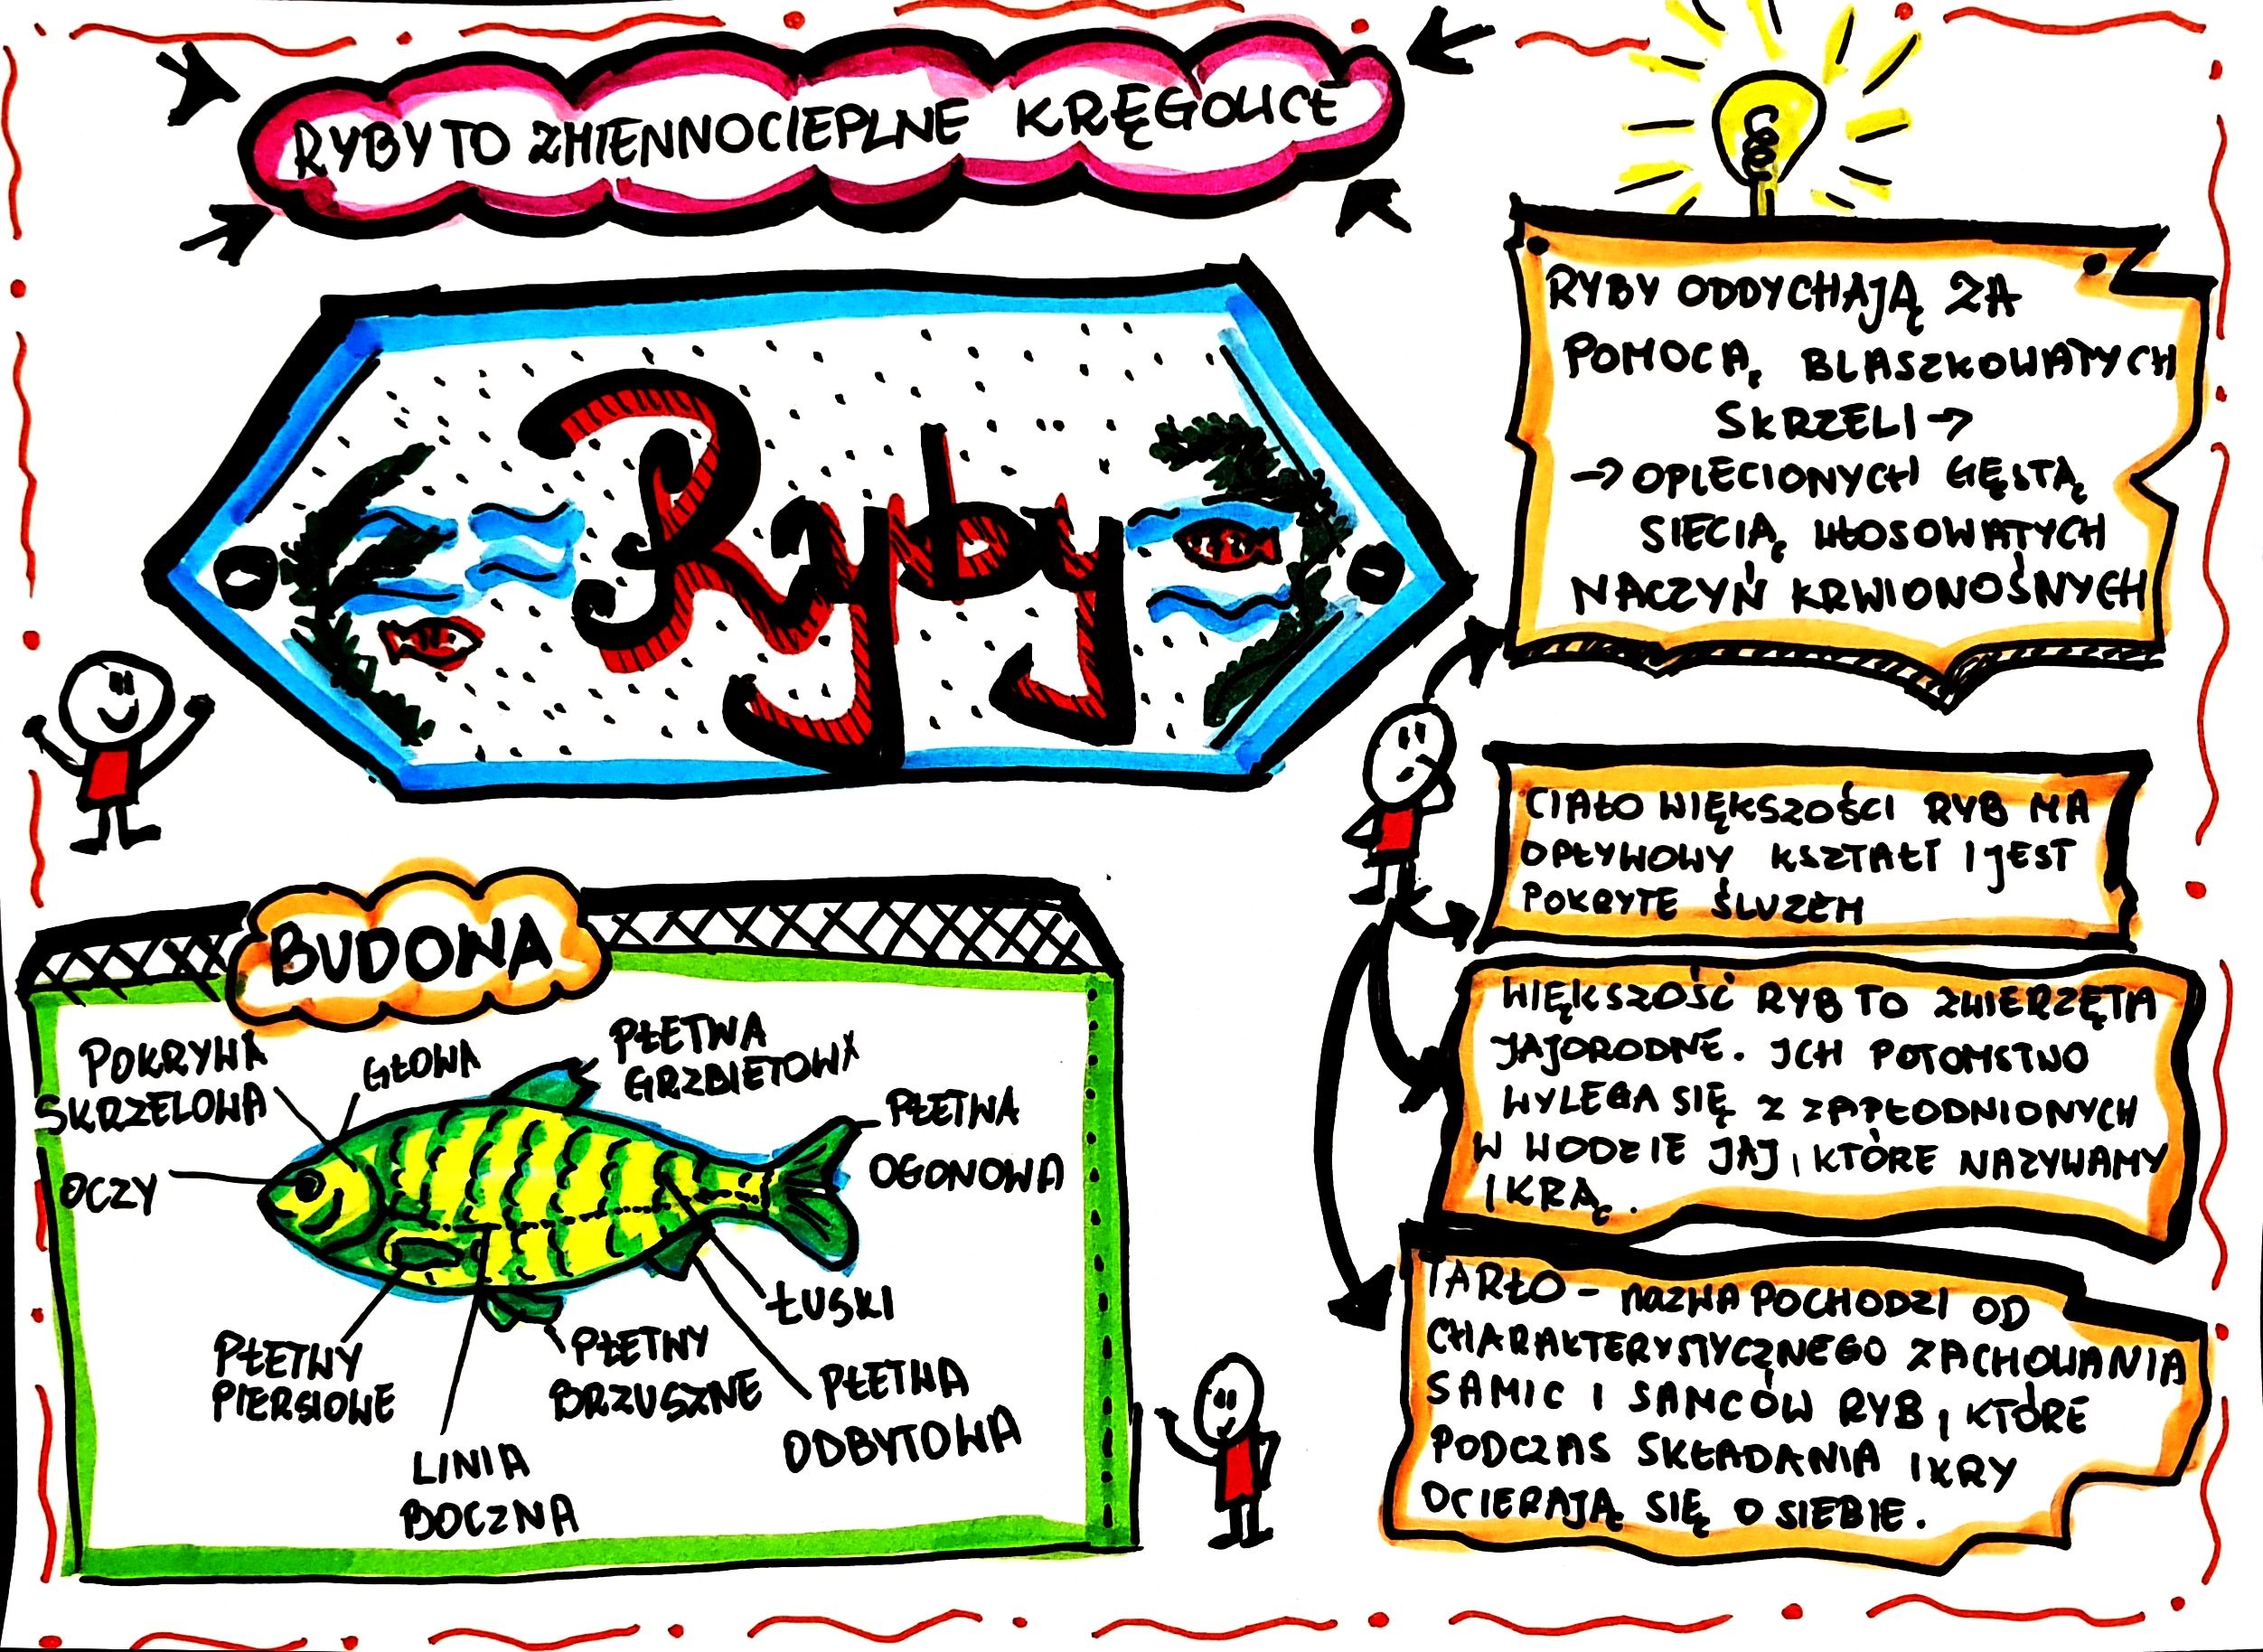 RYBY TO ZMIENNOCIEPLNE KRĘGOWCE
Ryby
RYBY ODDYCHAJĄ ZA
POMOCĄ BLASZKOWATYCH
SKRZELI →
→ OPLECIONYCH GĘSTĄ
SIECIĄ WŁOSOWATYCH
NACZYŃ KRWIONOŚNYCH
CIAŁO WIĘKSZOŚCI RYB MA
OPŁYWOWY KSZTAŁT I JEST
POKRYTE ŚLUZEM
WIĘKSZOŚĆ RYB TO ZWIERZĘTA
JAJORODNE. ICH POTOMSTWO
WYLEGA SIĘ Z ZAPŁODNIONYCH
W WODZIE JAJ, KTÓRE NAZYWAMY
IKRĄ.
TARŁO - NAZWA POCHODZI OD
CHARAKTERYSTYCZNEGO ZACHOWANIA
SAMIC I SAMCÓW RYB, KTÓRE
PODCZAS SKŁADANIA IKRY
OCIERAJĄ SIĘ O SIEBIE.
BUDOWA
POKRYWA
SKRZELOWA
GŁOWA
PŁETWA
GRZBIETOWA
PŁETWA
OGONOWA
OCZY
ŁUSKI
PŁETWY
PIERSIOWE
PŁETWY
BRZUSZNE
PŁETWA
ODBYTOWA
LINIA
BOCZNA